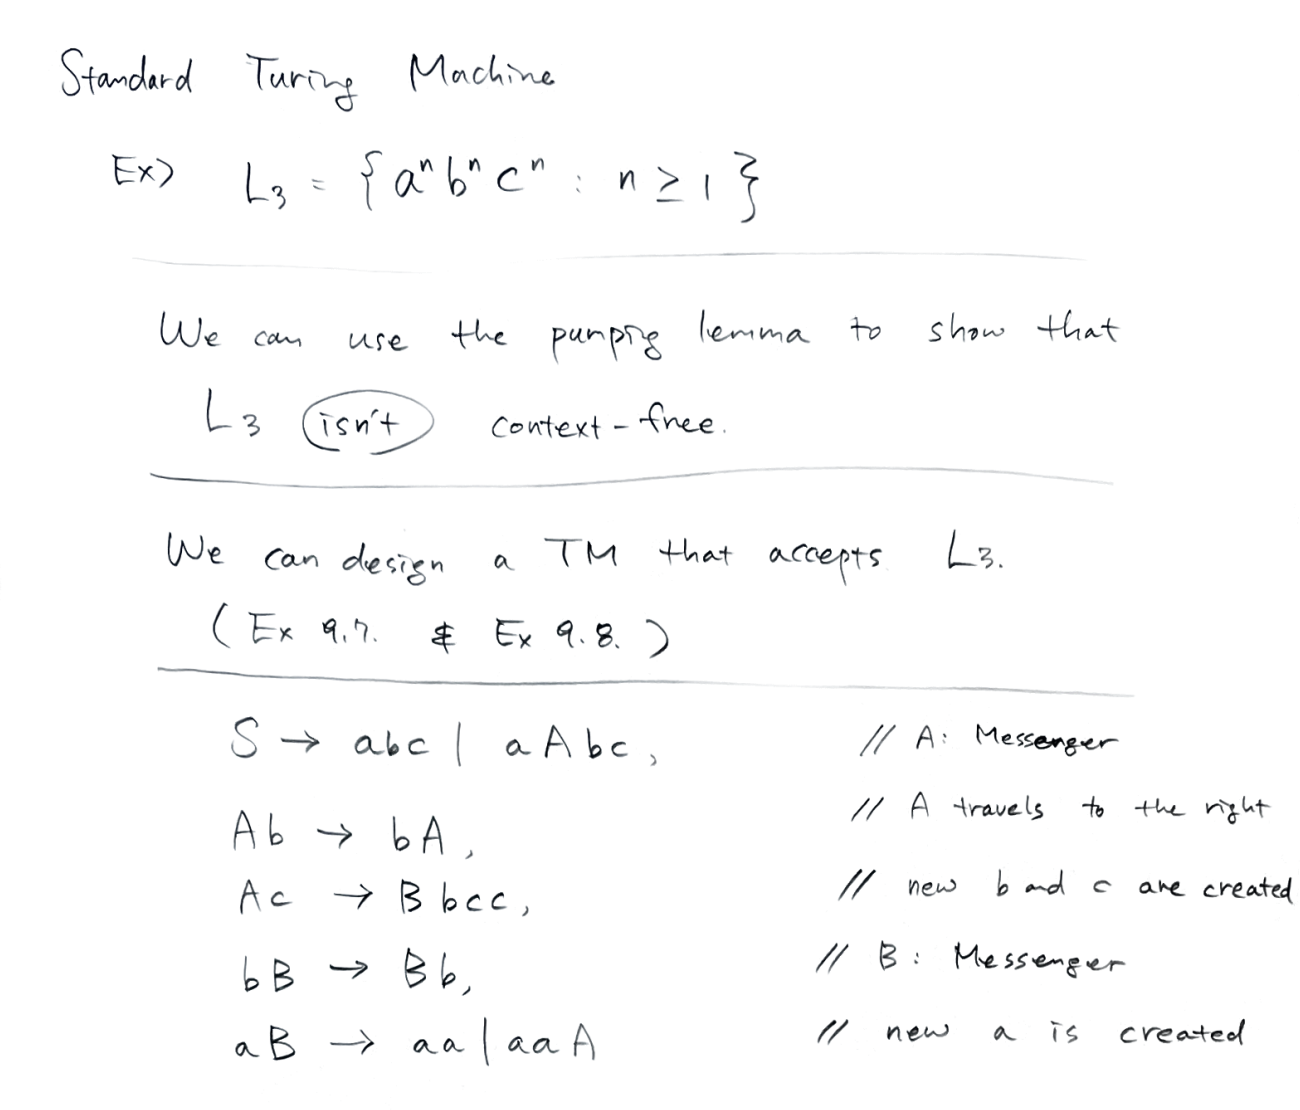 Standard Turing Machine
Ex> L₃ = { aⁿ bⁿ cⁿ : n ≥ 1 }
We can use the pumpig lemma to show that
L₃ isn't context-free.
We can design a TM that accepts L₃.
( Ex 9.7. & Ex 9.8. )
S → abc | aAbc, // A: Messenger
Ab → bA, // A travels to the right
Ac → Bbcc, // new b and c are created
bB → Bb, // B: Messenger
aB → aa | aaA // new a is created